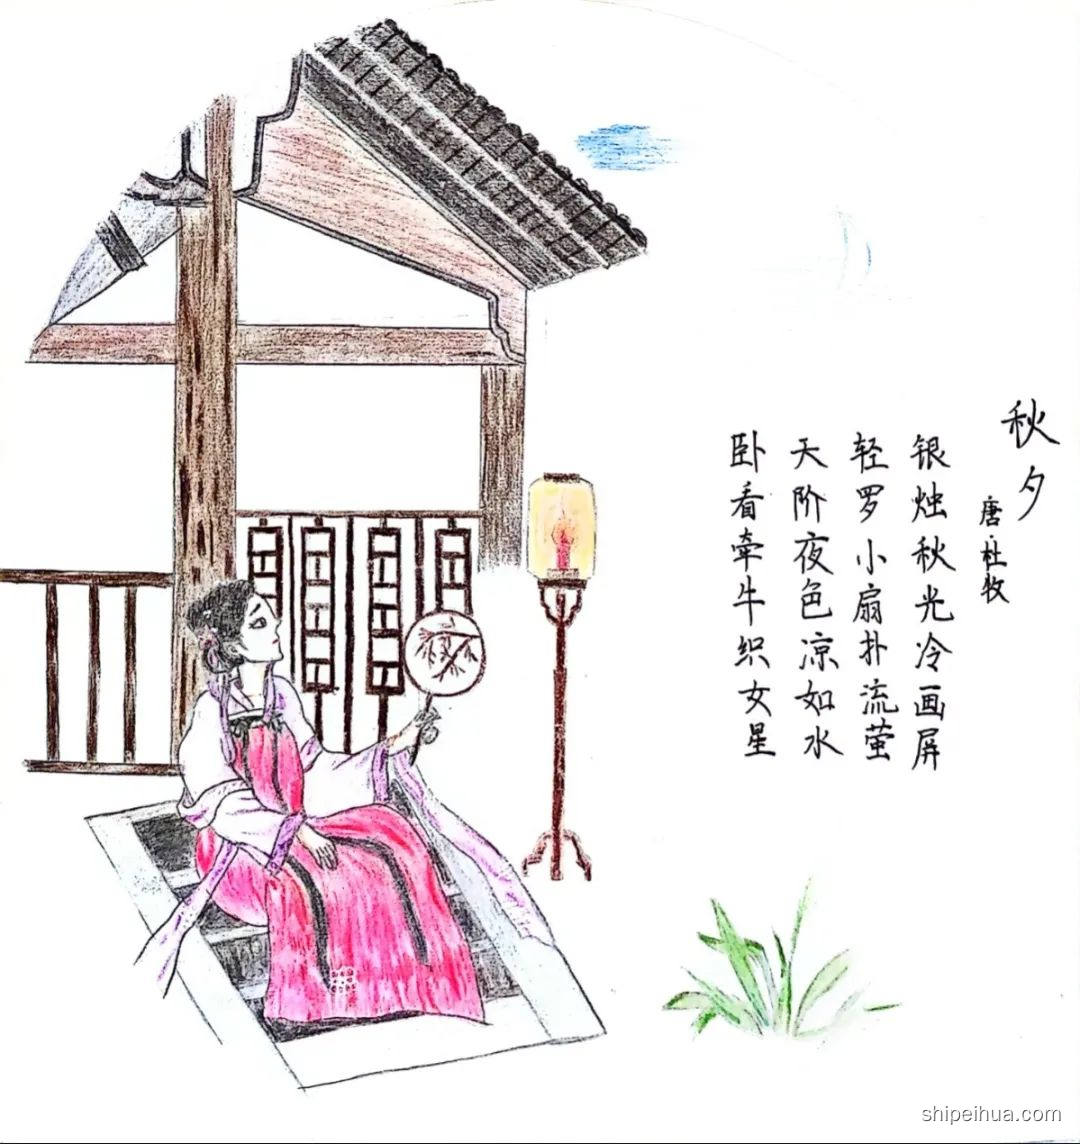 秋夕
唐·杜牧
银烛秋光冷画屏
轻罗小扇扑流萤
天阶夜色凉如水
卧看牵牛织女星
shipeihua.com